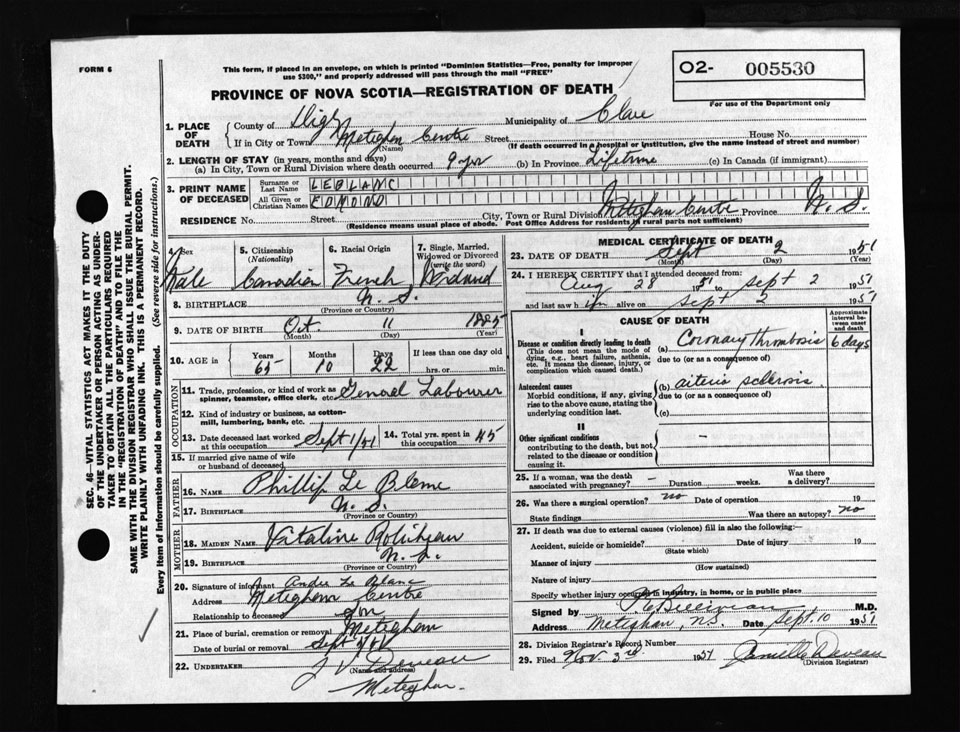 FORM 6
This form, if placed in an envelope, on which is printed "Dominion Statistics—Free, penalty for improper
use $300," and properly addressed will pass through the mail "FREE"
O2- 005530
For use of the Department only
PROVINCE OF NOVA SCOTIA—REGISTRATION OF DEATH
1. PLACE OF DEATH
County of Digby Municipality of Clare
If in City or Town Meteghan Centre Street House No.
(Name) (If death occurred in a hospital or institution, give the name instead of street and number)
2. LENGTH OF STAY (in years, months and days)
(a) In City, Town or Rural Division where death occurred 9 yr (b) In Province Lifetime (c) In Canada (if immigrant)
3. PRINT NAME OF DECEASED
Surname or Last Name LEBLANC
All Given or Christian Names EDMOND
RESIDENCE No. Street City, Town or Rural Division Meteghan Centre Province N. S.
(Residence means usual place of abode. Post Office Address for residents in rural parts not sufficient)
4. Sex Male
5. Citizenship (Nationality) Canadian
6. Racial Origin French
7. Single, Married, Widowed or Divorced (write the word) Widowed
8. BIRTHPLACE N. S.
(Province or Country)
9. DATE OF BIRTH Oct. 11 1885
(Month) (Day) (Year)
10. AGE in Years 65 Months 10 Days 22 If less than one day old
hrs. or min.
OCCUPATION
11. Trade, profession, or kind of work as spinner, teamster, office clerk, etc. Genral Labourer
12. Kind of industry or business, as cotton-mill, lumbering, bank, etc.
13. Date deceased last worked at this occupation Sept 1/51
14. Total yrs. spent in this occupation 45
15. If married give name of wife or husband of deceased
FATHER
16. NAME Phillip Le Blanc
17. BIRTHPLACE N. S.
(Province or Country)
MOTHER
18. MAIDEN NAME Vitaline Robicheau
19. BIRTHPLACE N. S.
(Province or Country)
20. Signature of informant Andre Le Blanc
Address Meteghan Centre
Relationship to deceased Son
21. Place of burial, cremation or removal Meteghan
Date of burial or removal Sept
22. UNDERTAKER J V Deveau
(Name and address)
Meteghan.
MEDICAL CERTIFICATE OF DEATH
23. DATE OF DEATH Sept 2 1951
(Month) (Day) (Year)
24. I HEREBY CERTIFY that I attended deceased from:
Aug 28 1951 to Sept 2 1951
and last saw h im alive on Sept 2 1951
CAUSE OF DEATH
Approximate interval between onset and death
I
Disease or condition directly leading to death
(This does not mean the mode of dying, e.g., heart failure, asthenia, etc. It means the disease, injury, or complication which caused death.)
(a) Coronary Thrombosis 6 days
due to (or as a consequence of)
Antecedent causes
Morbid conditions, if any, giving rise to the above cause, stating the underlying condition last.
(b) arterio sclerosis
due to (or as a consequence of)
(c)
II
Other significant conditions
contributing to the death, but not related to the disease or condition causing it.
–
25. If a woman, was the death associated with pregnancy? – Duration weeks. Was there a delivery?
26. Was there a surgical operation? no Date of operation 19
State findings Was there an autopsy? no
27. If death was due to external causes (violence) fill in also the following:—
Accident, suicide or homicide? Date of injury 19
(State which)
Manner of injury
(How sustained)
Nature of injury
Specify whether injury occurred in industry, in home, or in public place
Signed by M.D.
Address Meteghan, N.S. Date Sept. 10 1951
28. Division Registrar's Record Number
29. Filed Nov. 3rd 1951 Camille Deveau
(Division Registrar)
SEC. 46—VITAL STATISTICS ACT MAKES IT THE DUTY
OF THE UNDERTAKER OR PERSON ACTING AS UNDER-
TAKER TO OBTAIN ALL THE PARTICULARS REQUIRED
IN THE "REGISTRATION OF DEATH" AND TO FILE THE
SAME WITH THE DIVISION REGISTRAR WHO SHALL ISSUE THE BURIAL PERMIT.
WRITE PLAINLY WITH UNFADING INK. THIS IS A PERMANENT RECORD.
Every item of information should be carefully supplied. (See reverse side for instructions.)